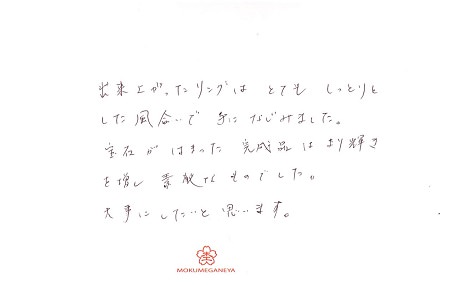 出来上がったリングは とても しっとりと
した風合いで 手に なじみました。
宝石が はまった 完成品は より輝き
を増し 素敵な ものでした。
大事にしたいと思います。
MOKUMEGANEYA